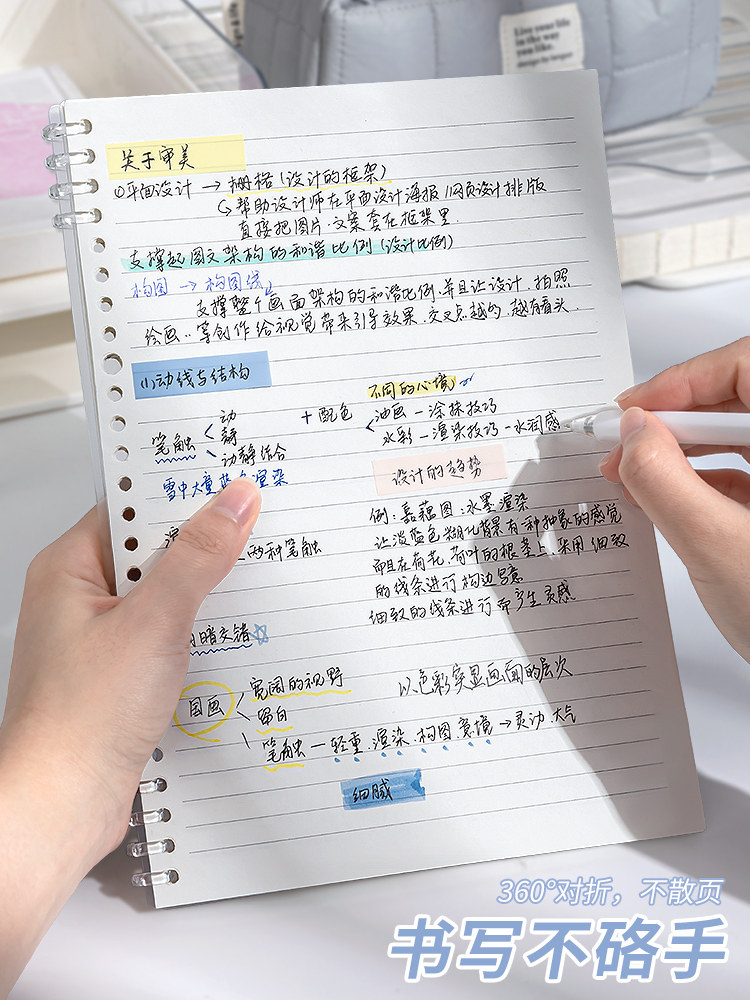 Live your life
in the way
you like.
关于审美
①平面设计 → 栅格(设计的框架)
↳ 帮助设计师在平面设计海报/网页设计排版
直接把图片.文案套在框架里
支撑起图文架构的和谐比例(设计比例)
构图 → 构图线
支撑整个画面架构的和谐比例.并且让设计.拍照
绘画..等创作给视觉带来引导效果.交叉点越多.越有看头.
(1)动线与结构
不同的心境
笔触 < 动 + 配色 < 油画 — 涂抹技巧
静 水彩 — 渲染技巧 — 水润感
动静结合
雪中大量蓝色渲染
设计的趋势
例:嘉藕图:水墨渲染
让淡蓝色糊化背景有一种抽象的感觉
两种笔触
而且在荷花.荷叶的根茎上.采用细致
的线条进行构边
细致的线条进行而产生灵感
暗交错☆
国画 < 宽阔的视野
留白
笔触 — 轻重.渲染.构图.意境 → 灵动.大气
以色彩突显画面的层次
细腻
360°对折，不散页
书写不硌手